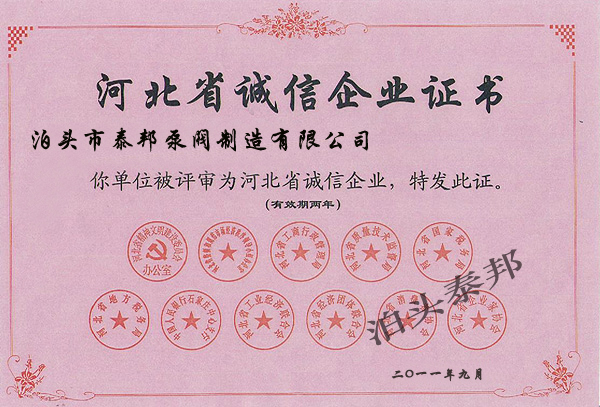 河北省诚信企业证书
泊头市泰邦泵阀制造有限公司
你单位被评审为河北省诚信企业，特发此证。
(有效期两年)
河北省精神文明建设委员会
办公室
河北省工商行政管理局
河北省质量技术监督局
河北省国家税务局
河北省地方税务局
中国人民银行石家庄中心支行
河北省工业经济联合会
河北省经济团体联合会
河北省企业家协会
泊头泰邦
二〇一一年九月